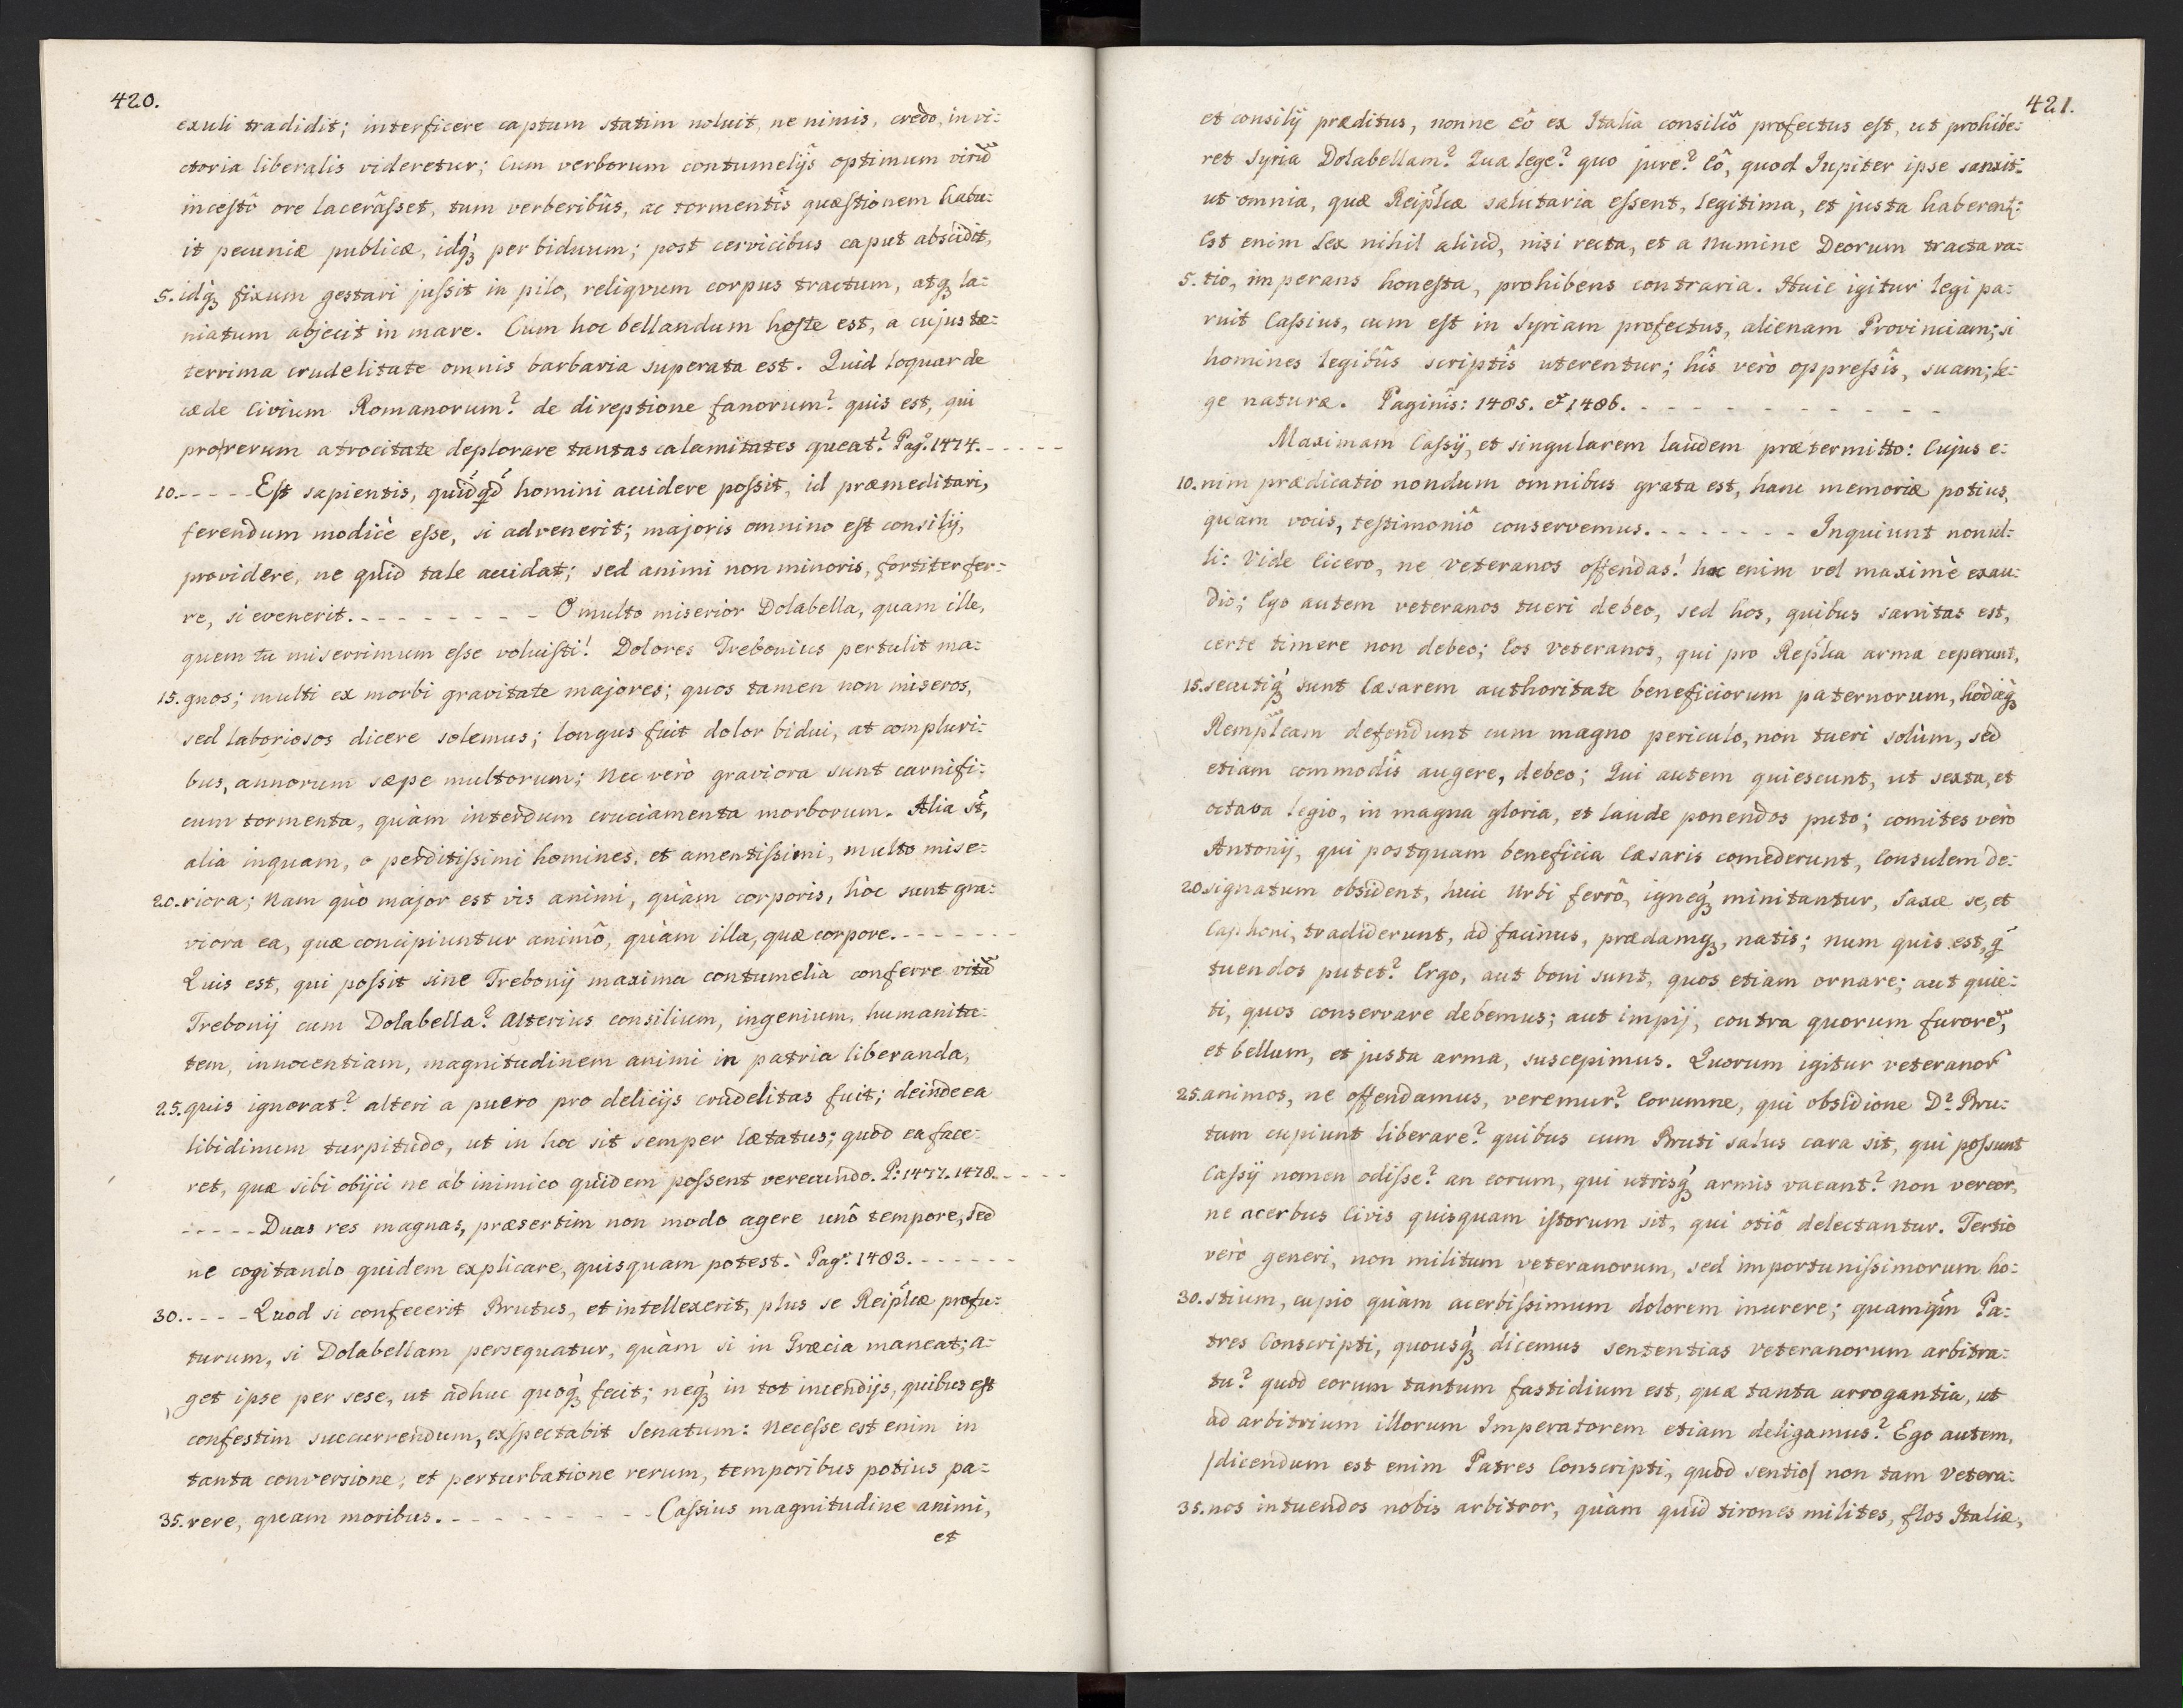 420.
exuli tradidit; interficere captum statim noluit, ne nimis, credo, in vi:
ctoria liberalis videretur; Cum verborum contumelijs optimum virũ
incestô ore lacerâsset, tum verberibûs, ac tormentîs quæstionem habu:
it pecuniæ publicæ, idq́ꝫ per biduum; post cervicibus caput abscidit,
5. idq́ꝫ fixum gestari jussit in pilo, reliqvum corpus tractum, atqꝫ la:
niatum abjecit in mare. Cum hoc bellandum hoste est, a cujus tæ:
terrima crudelitate omnis barbaria superata est. Quid loquar de
cæde Civium Romanorum? de direptione fanorum? quis est, qui
pro rerum atrocitate deplorare tantas calamitates queat? Pag: 1474. - - - - -
10. - - - - - Est sapientis, quidq̃d homini accidere possit, id præmeditari,
ferendum modicè esse, si advenerit; majoris omnino est consilij,
providere, ne quid tale accidat; sed animi non minoris, fortiter fer:
re, si evenerit. - - - - - - - - - O multo miserior Dolabella, quam ille,
quem tu miserrimum esse voluisti! Dolores Trebonius pertulit ma:
15. gnos; multi ex morbi gravitate majores; quos tamen non miseros,
sed laboriosos dicere solemus; longus fuit dolor bidui, at compluri:
bus, annorum sæpe multorum; Nec verò graviora sunt carnifi:
cum tormenta, quàm interdum cruciamenta morborum. Alia st̃,
alia inquam, o perditissimi homines, et amentissimi, multo mise:
20. riora; Nam quò major est vis animi, quàm corporis, hòc sunt gra:
viora ea, quæ concipiuntur animô, quàm illa, quæ corpore. - - - - - - -
Quis est, qui possit sine Trebonij maxima contumelia conferre vitã
Trebonij cum Dolabella? Alterius consilium, ingenium, humanita:
tem, innocentiam, magnitudinem animi in patria liberanda,
25. quis ignorat? alteri a puero pro delicijs crudelitas fuit; deinde ea
libidinum turpitudo, ut in hoc sit semper lætatus; quod ea face:
ret, quæ sibi obijci ne ab inimico quidem possent verecundo. P: 1477. 1478. - - - -
- - - - - Duas res magnas, præsertim non modo agere unô tempore, sed
ne cogitando quidem explicare, quisquam potest. Pag: 1483. - - - - - - -
30. - - - - Quod si confecerit Brutus, et intellexerit, plus se Reip̃lcæ profu:
turum, si Dolabellam persequatur, quàm si in Græcia maneat; a:
get ipse per sese, ut adhuc quoq́ꝫ fecit; neq́ꝫ in tot incendijs, quibus est
confestim succurrendum, exspectabit Senatum: Necesse est enim in
tanta conversione, et perturbatione rerum, temporibus potius pa:
35. rere, quam moribus. - - - - - - - - - - Cassius magnitudine animi,
et
421.
et consilij præditus, nonne eô ex Italia consiliô profectus est, ut prohibe:
ret Syria Dolabellam? Qua lege? quo jure? Eô, quod Jupiter ipse sanxit:
ut omnia, quæ Reip̃lcæ salutaria essent, legitima, et justa haberentꝛ:
Est enim Lex nihil aliud, nisi recta, et a Numine Deorum tracta ra:
5. tio, imperans honesta, prohibens contraria. Huic igitur legi pa:
ruit Cassius, cum est in Syriam profectus, alienam Provinciam; si
homines legibûs scriptîs uterentur; hîs verò oppressîs, suam; le:
ge naturæ. Paginîs: 1485. et 1486. - - - - - - - - - - - -
Maximam Cassij, et singularem laudem prætermitto: Cujus e:
10. nim prædicatio nondum omnibus grata est, hanc memoriæ potius,
quàm vocis, testimoniô conservemus. - - - - - - - - Inquiunt nonul:
li: Vide Cicero, ne veteranos offendas! hoc enim vel maximè exau:
dio; Ego autem veteranos tueri debeo, sed hos, quibus sanitas est,
certe timere non debeo; Eos veteranos, qui pro Rep̃lca arma ceperunt,
15. secutiq́ꝫ sunt Cæsarem authoritate beneficiorum paternorum, hodieq́ꝫ
Remp̃lcam defendunt cum magno periculo, non tueri solùm, sed
etiam commodîs augere, debeo; Qui autem quiescunt, ut sexta, et
octava legio, in magna gloria, et laude ponendos puto; comites verò
Antonij, qui postquam beneficia Cæsaris comederunt, Consulem de:
20. signatum obsident, huic Urbi ferrô, igneq́ꝫ minitantur, Saxæ se, et
Caphoni, tradiderunt, ad facinus, prædamqꝫ, natis; num quis est, q̃
tuendos putet? Ergo, aut boni sunt, quos etiam ornare; aut quie:
ti, quos conservare debemus; aut impij, contra quorum furorẽ,
et bellum, et justa arma, suscepimus. Quorum igitur veteranoꝝ
25. animos, ne offendamus, veremur? Eorumne, qui obsidione D: Bru:
tum cupiunt liberare? quibus cum Bruti salus cara sit, qui possunt
Cassij nomen odisse? an eorum, qui utrisq́ꝫ armis vacant? non vereor,
ne acerbus Civis quisquam istorum sit, qui otiô delectantur. Tertio
verò generi, non militum veteranorum, sed importunissimorum ho:
30. stium, cupio quàm acerbissimum dolorem inurere; quamq̃m Pa:
tres Conscripti, quousq́ꝫ dicemus sententias veteranorum arbitra:
tu? quod eorum tantum fastidium est, quæ tanta arrogantia, ut
ad arbitrium illorum Imperatorem etiam deligamus? Ego autem,
/dicendum est enim Patres Conscripti, quod sentio/ non tam vetera:
35. nos intuendos nobis arbitror, quàm quid tirones milites, flos Italiæ,